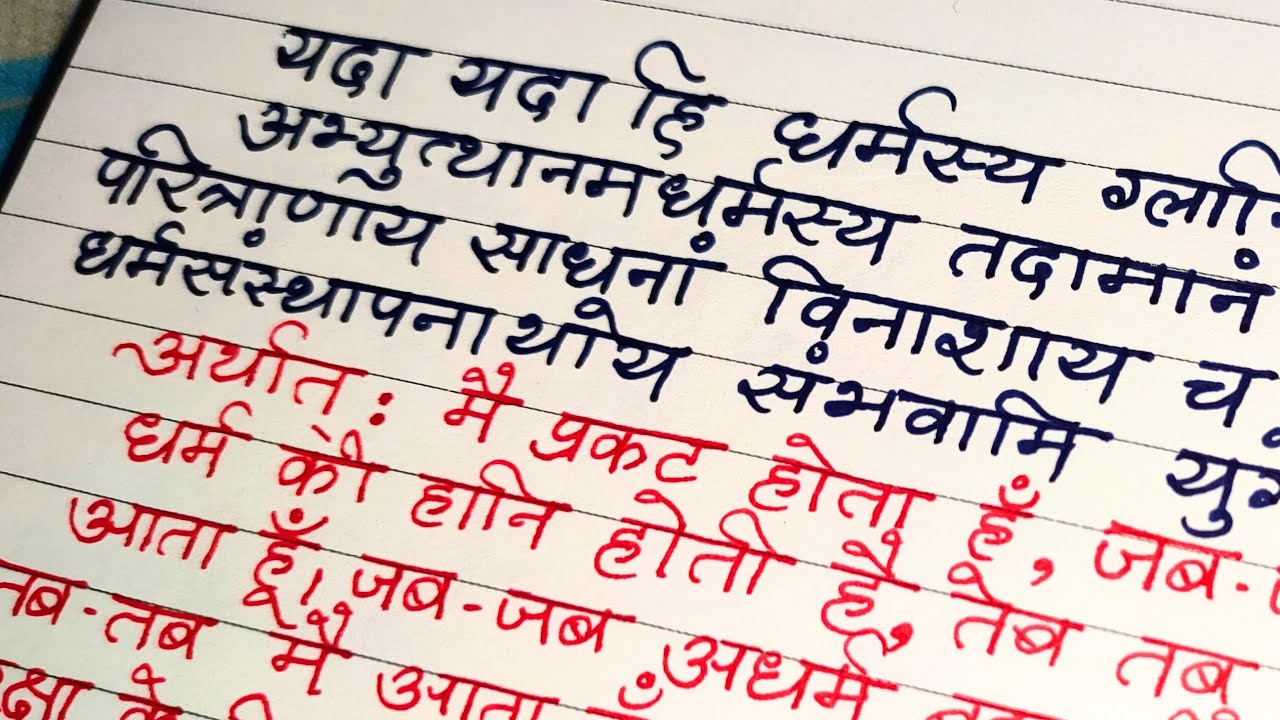 यदा यदा हि धर्मस्य ग्लानि
अभ्युत्थानमधर्मस्य तदामानं
परित्राणाय साधूनां विनाशाय च
धर्मसंस्थापनार्थाय संभवामि
अर्थात् : मै प्रकट होता हूँ, जब-
धर्म की हानि होती है, तब तब
आता हूँ, जब-जब अधर्म
तब-तब मैं आता
के